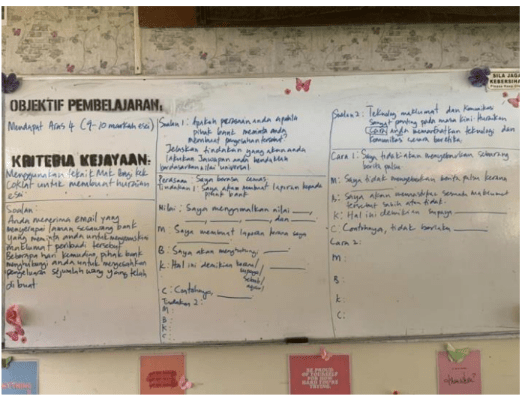 SILA JAGA
KEBERSIHAN
OBJEKTIF PEMBELAJARAN:
Mendapat Aras 4 (9-10 markah esei)
KRITERIA KEJAYAAN:
Menggunakan teknik Mak Bing kek
Coklat untuk membuat huraian
esei
Soalan:
Anda menerima email yang
menyerupai laman sesawang bank
yang meminta anda untuk
maklumat peribadi tersebut
Beberapa hari kemudian, pihak bank
menghubungi anda untuk mengesahkan
pengeluaran sejumlah wang yang telah
di buat
Soalan 1: Apakah perasaan anda apabila
pihak bank meminta anda
membuat pengesahan tersebut?
Jelaskan tindakan yang akan anda
lakukan. Jawapan anda hendaklah
berdasarkan nilai universal
Perasaan: Saya berasa cemas
Tindakan 1: Saya akan membuat laporan kepada
pihak bank
Nilai: Saya mengamalkan nilai ____,
____, ____, dan ____
M: Saya membuat laporan kerana saya
____
B: Saya akan menghubungi ____
K: Hal ini demikian kerana/
supaya/
sebab/
agar/
C: Contohnya, ____
Tindakan 2:
M:
B:
K:
C:
Soalan 2: Teknologi maklumat dan komunikasi
sangat penting pada masa kini. Huraikan
cara anda memanfaatkan teknologi dan
komunikasi secara beretika.
Cara 1: Saya tidak akan menyebarkan sebarang
berita palsu
M: Saya tidak menyebarkan berita palsu kerana
B: Saya akan memastikan semua maklumat
tersebut sahih atau tidak.
K: Hal ini demikian supaya ____
C: Contohnya, tidak ____
Cara 2:
M:
B:
K:
C:
BE PROUD
OF YOURSELF
FOR HOW
HARD YOU'RE
TRYING